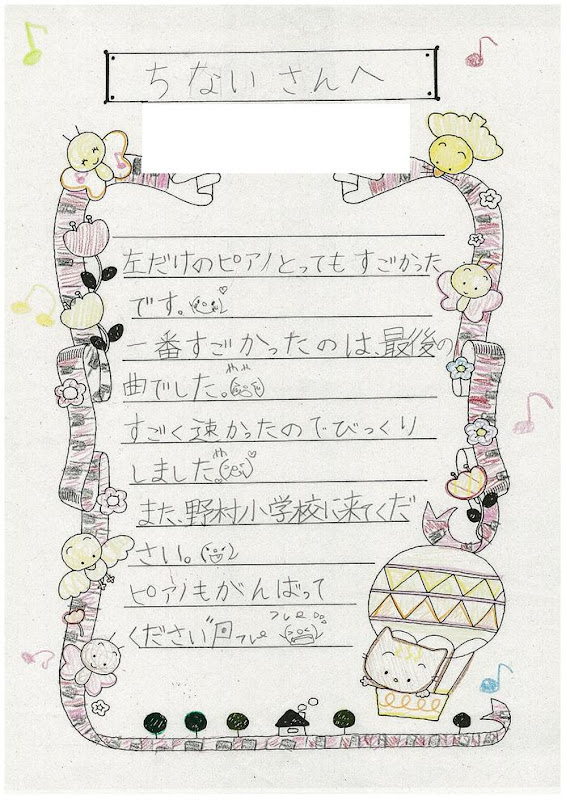 ちないさんへ
左だけのピアノとってもすごかった
です。
一番すごかったのは、最後の
曲でした。
すごく速かったのでびっくり
しました。
また、野村小学校に来てくだ
さい。
ピアノもがんばって
ください
フレー
フレー